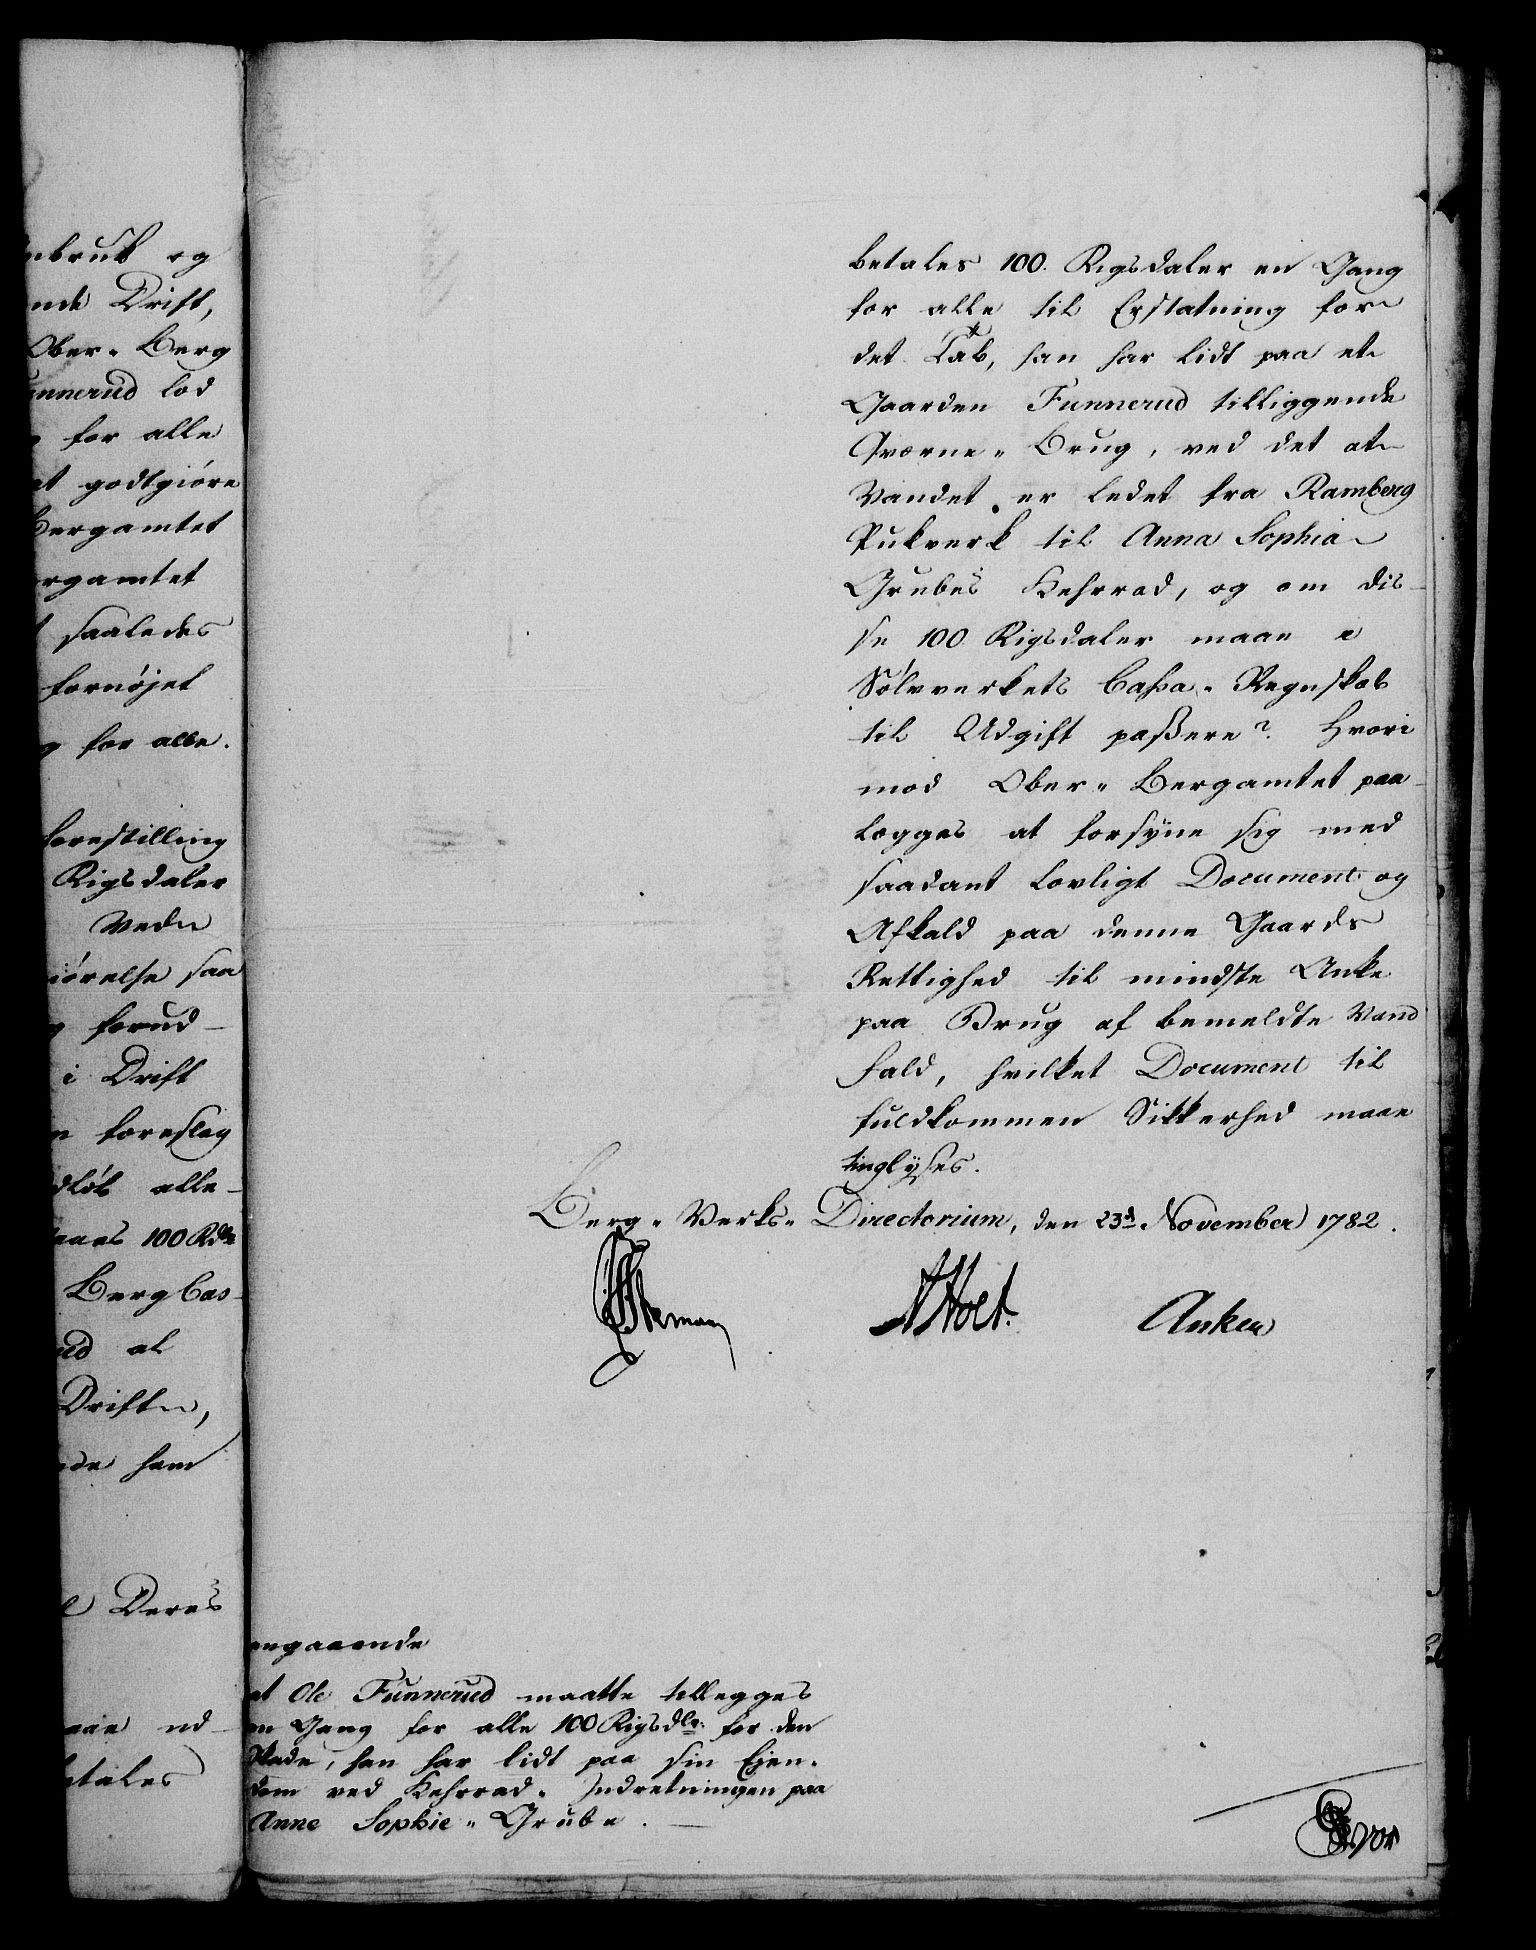 nbruk og
nde Drift,
Ober-Berg
unnerud lod
for alle
at godtgiøre
Bergamtet
rgamtet
saaledes
fornøjet
g for alle.
forestilling
Rigsdaler
Veder
iørelse saa
forud-
i Drift
n foreslag
dløb alle-
100 Rdlr
BergCas-
ud at
Driften,
nde ham
Deres
ud-
etales
betales 100. Rigsdaler en Gang
for alle til Erstatning for
det Tab, han har lidt paa et
Gaarden Funnerud tilliggende
Qværne-Brug, ved det at
Vandet er ledet fra Ramberg
Pukverk til Anna Sophia
Grubes Kehrrad, og om dis-
se 100 Rigsdaler maae i
Sølvverkets Cassa-Regnskab
til Udgift passere? Hvori
mod Ober-Bergamtet paa-
lægges at forsyne sig med
saadant lovligt Document og
Afkald paa denne Gaards
Rettighed til mindste Anke
paa Brug af bemeldte Vand
fald, hvilket Document til
fuldkommen Sikkerhed maae
tinglyses.
Berg-Verks-Directorium, den 23d November 1782.
Stemann AHolt. Anker
angaaende
at Ole Funnerud maatte tillegges
en Gang for alle 100 Rigsdlr. for den
Skade, han har lidt paa sin Ejen-
dom ved Kehrrad-Indretningen paa
Anne Sophie-Grube.